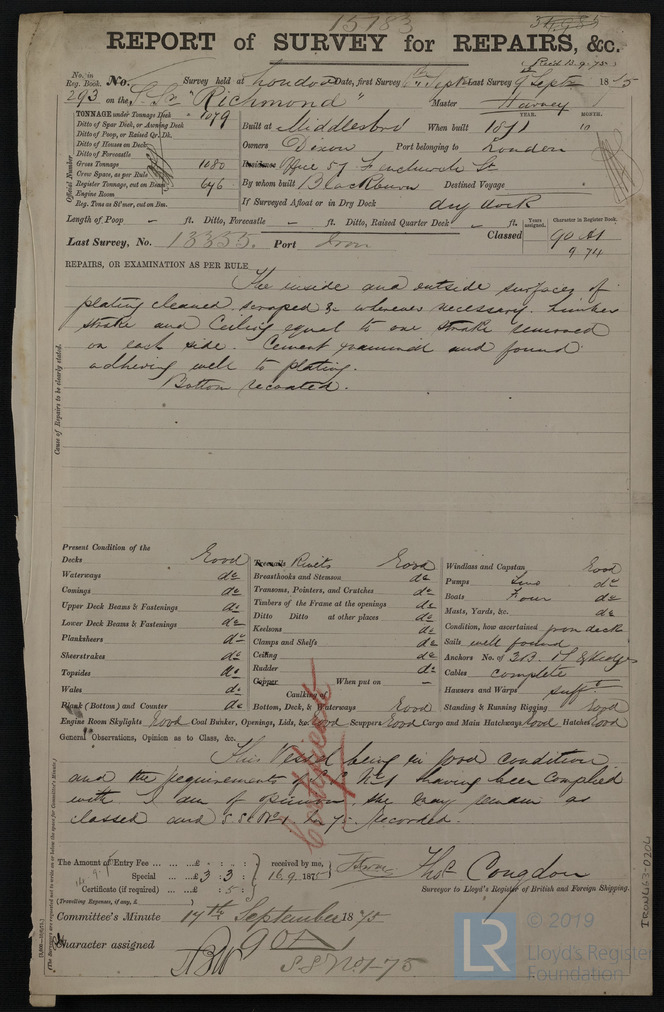 15183
REPORT of SURVEY for REPAIRS, &c.
No. in Reg. Book. No. Survey held at London Date, first Survey 6th Sept Last Survey 9 Sept 1875
293 on the S. Sr "Richmond" Master Harvey
TONNAGE under Tonnage Deck 1079
Ditto of Spar Deck, or Awning Deck
Ditto of Poop, or Raised Qr. Dk.
Ditto of Houses on Deck
Ditto of Forecastle
Gross Tonnage 1080
Crew Space, as per Rule
Register Tonnage, cut on Beam 696
Engine Room
Reg. Tons as St'mer, cut on Bm.
Official Number
YEAR. MONTH.
Built at Middlesbro When built 1871 10
Owners Dixon Port belonging to London
Residence Office 57 Fenchurch St
By whom built Blackburn Destined Voyage
If Surveyed Afloat or in Dry Dock dry dock
Length of Poop – ft. Ditto, Forecastle – ft. Ditto, Raised Quarter Deck – ft.
Years assigned. Character in Register Book.
Last Survey, No. 13355. Port Iron Classed 90 A1
9.74
REPAIRS, OR EXAMINATION AS PER RULE
The inside and outside surfaces of
plating cleaned scraped &c wherever necessary. Limber
strake and Ceiling equal to one strake removed
on each side. Cement examined and found
adhering well to plating.
Bottom recoated.
Cause of Repairs to be clearly stated.
Present Condition of the
Decks Good
Waterways do
Comings do
Upper Deck Beams & Fastenings do
Lower Deck Beams & Fastenings do
Planksheers do
Sheerstrakes do
Topsides do
Wales do
Plank (Bottom) and Counter do
Treenails Rivets Good
Breasthooks and Stemson do
Transoms, Pointers, and Crutches do
Timbers of the Frame at the openings do
Ditto Ditto at other places do
Keelsons do
Clamps and Shelfs do
Ceiling do
Rudder do
Copper When put on –
Caulking of
Bottom, Deck, & Waterways Good
Windlass and Capstan Good
Pumps Two do
Boats Four do
Masts, Yards, &c. do
Condition, how ascertained from deck
Sails well found
Anchors No. of 3 B. 1 S & Kedges
Cables complete
Hawsers and Warps suff't
Standing & Running Rigging Good
Engine Room Skylights Good Coal Bunker, Openings, Lids, &c. Good Scuppers Good Cargo and Main Hatchways Good Hatches Good
General Observations, Opinion as to Class, &c.
This Vessel being in good condition
and the requirements of S.S. No 1 having been complied
with I am of opinion she may remain as
classed and S.S. No 1 - 75 recorded.
Certificate
The Amount of Entry Fee ... £ : :
Special ... £ 3 : 3 :
Certificate (if required) ... £ : 5 :
(Travelling Expenses, if any, £ )
received by me,
16.9.1875
Thos. Congdon
Surveyor to Lloyd's Register of British and Foreign Shipping.
Committee's Minute 17th September 1875
Character assigned 90 A1
S S No 1-75
(The Surveyors are requested not to write on or below the space for Committee's Minute.)
IRON463-0206
© 2019
LR
Lloyd's Register
Foundation